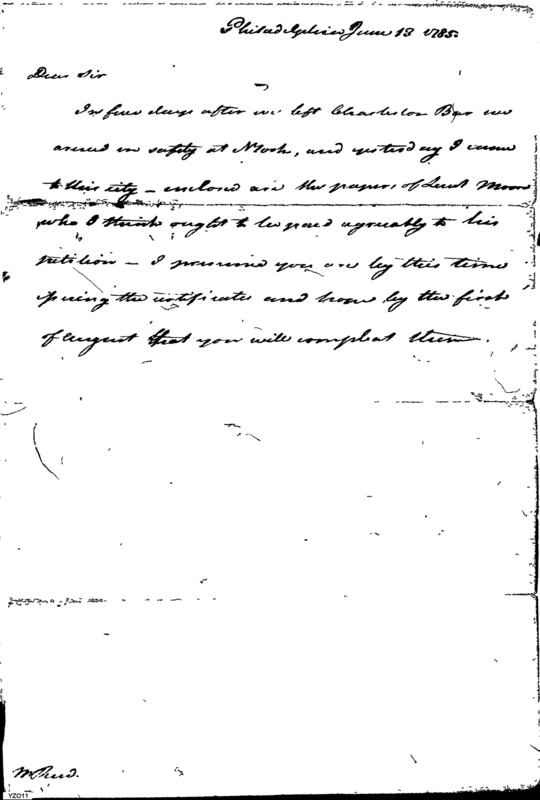 Philadelphia June 13 1785.
Dear Sir
In five days after we left Charleston Bar we
arived in safety at NYork, and yesterday I came
to this city – enclosed are the papers of Lieut Moore
who I think ought to be paid agreeably to his
petition – I presume you are by this time
issuing the certificates and hope by the first
of August that you will compleat them.
YZO11